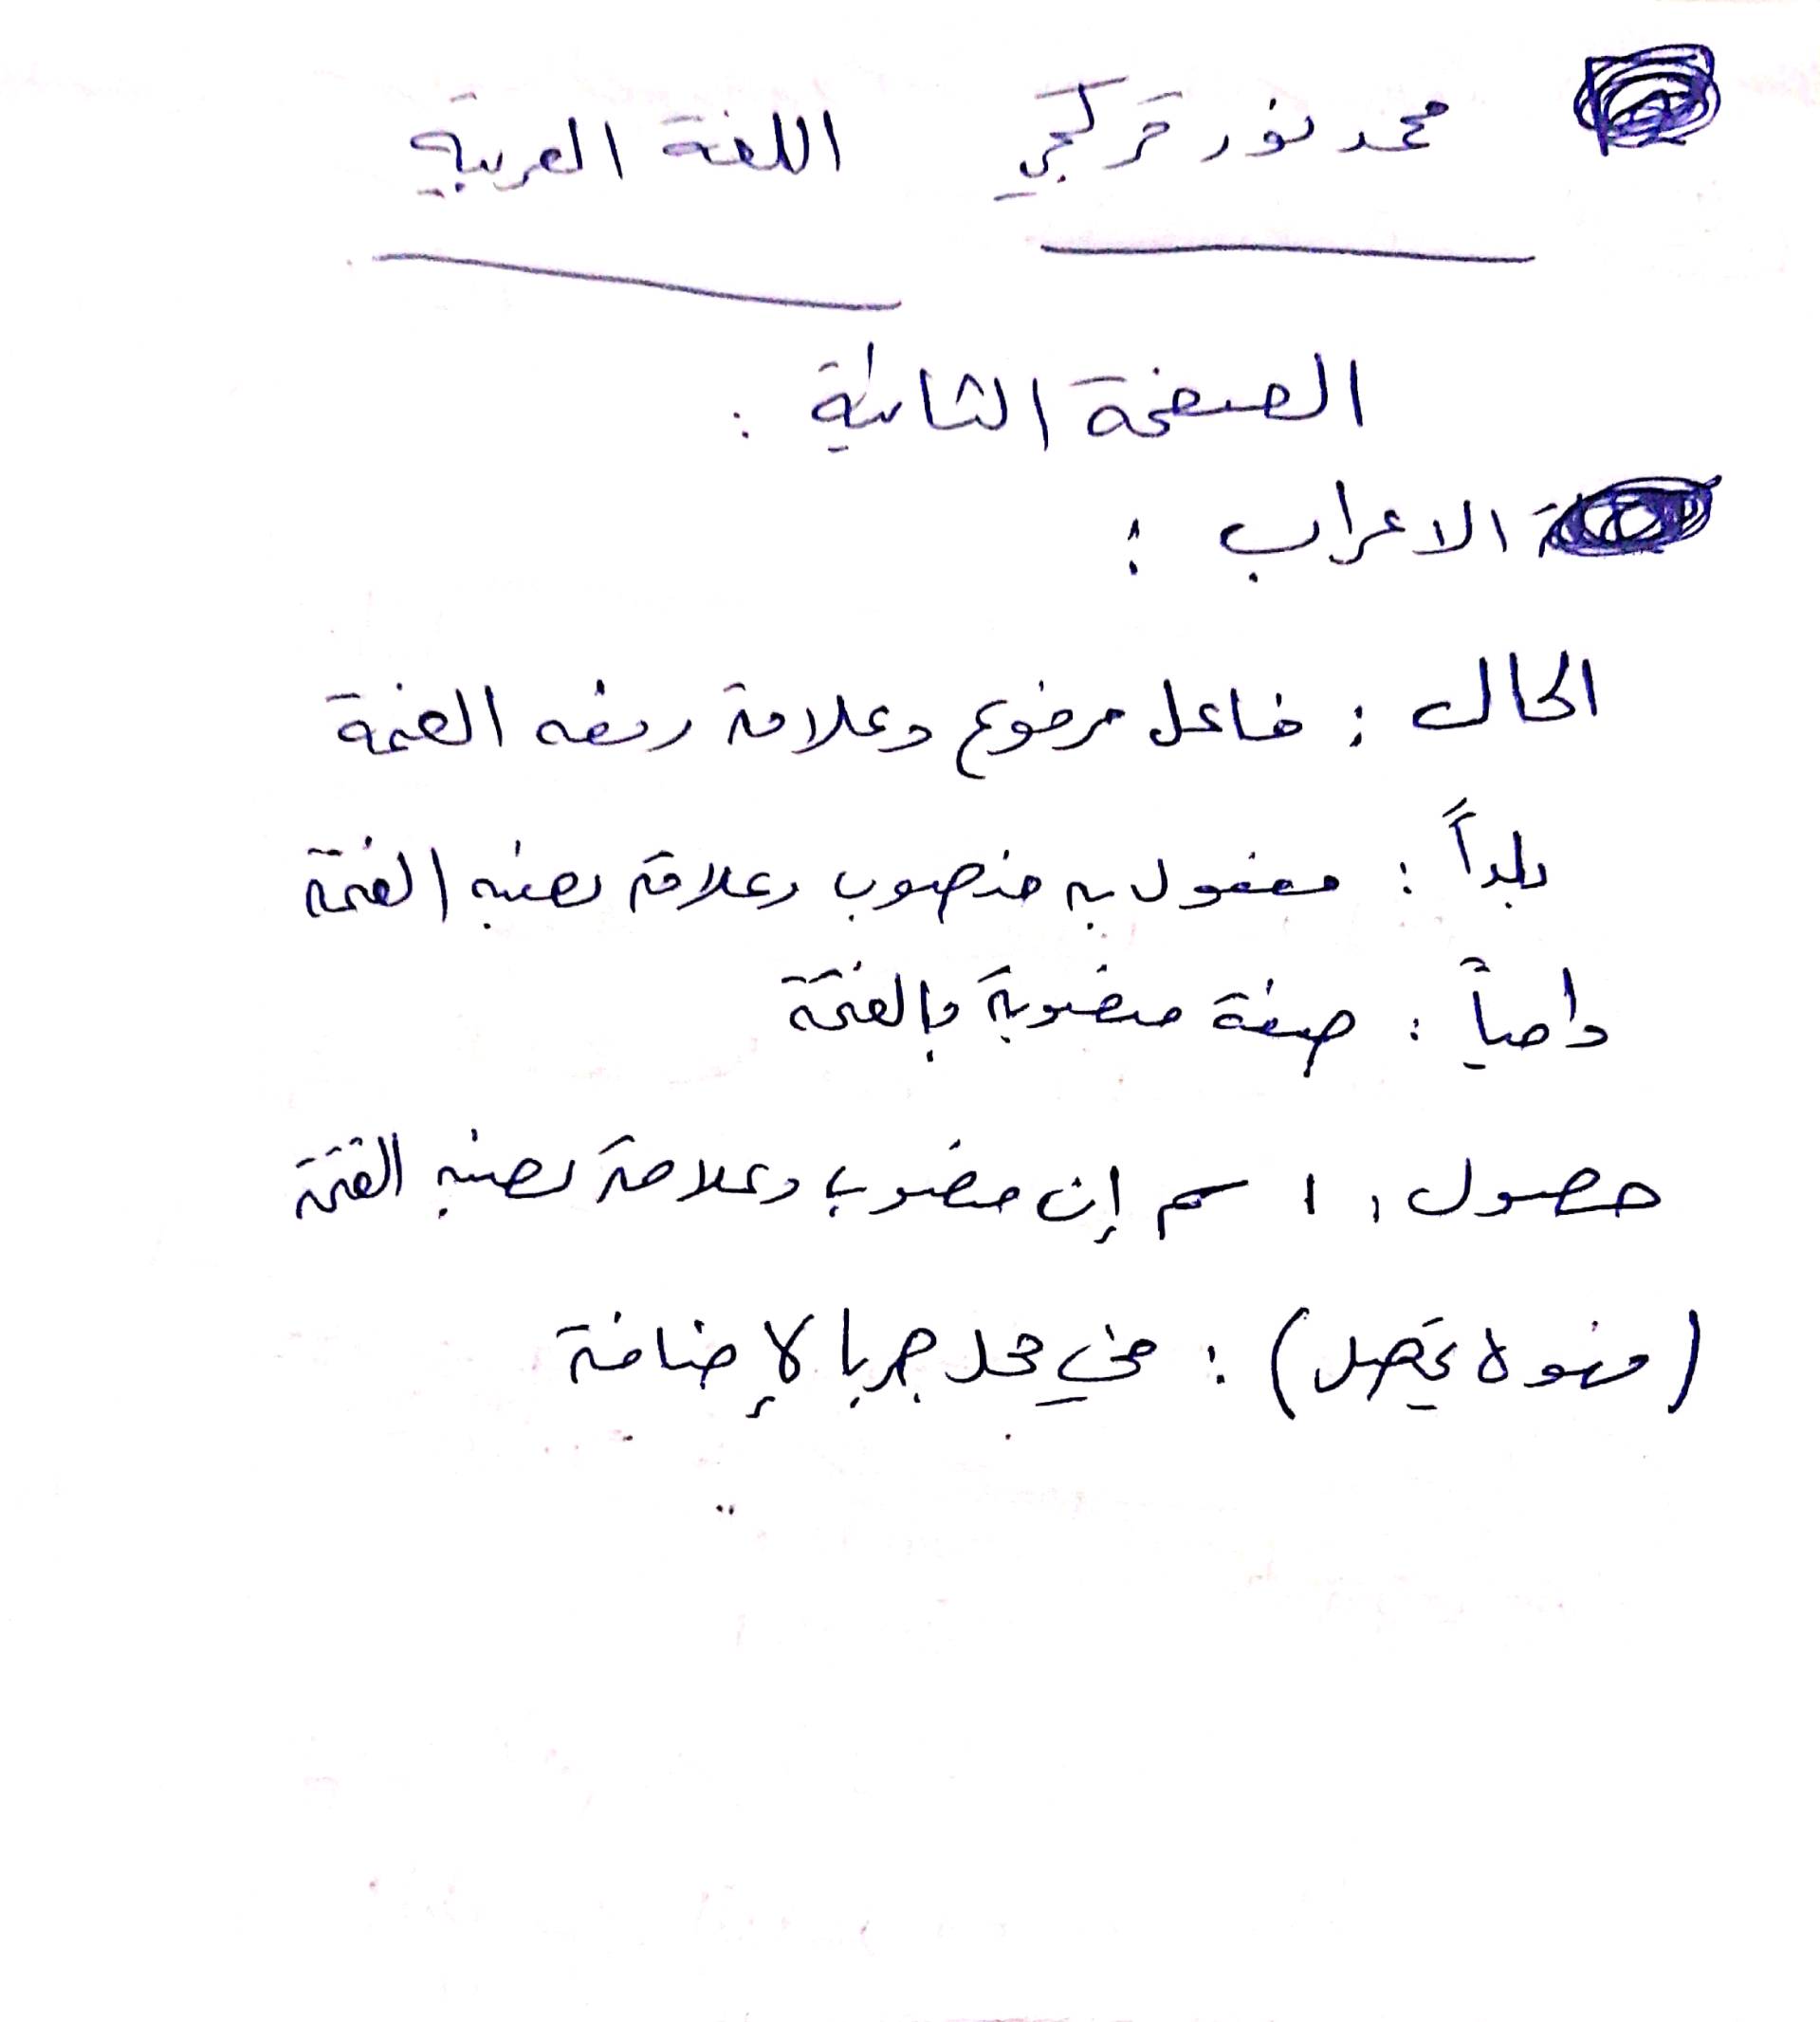 محمد نور تركجي اللغة العربية
الصفحة الثانية :
الاعراب :
الحال : فاعل مرفوع وعلامة رفعه الضمة
بلداً : مفعول به منصوب وعلامة نصبه الفتحة
: صفة منصوبة بالفتحة
حصول : اسم إن منصوب وعلامة نصبه الفتحة
( فهو لا يحصل ) : في محل جر بالإضافة